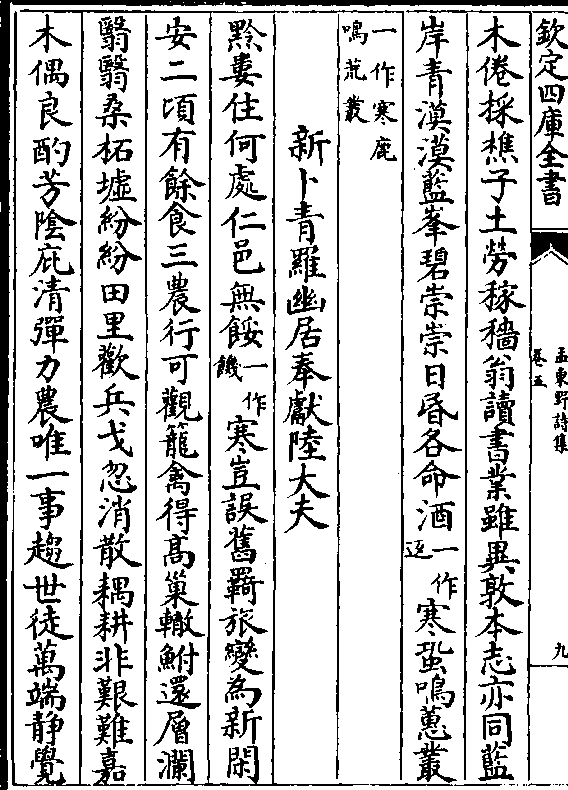 欽定四庫全書
孟東野詩集
卷五
九
木倦採樵子土勞稼穡翁讀書業雖異敦本志亦同藍
岸青漠漠藍峯碧崇崇日昏各命酒一作返寒蛩鳴蕙叢
一作寒鹿
鳴荒叢
新卜青羅幽居奉獻陸大夫
黔婁住何處仁邑無餒一作饑寒豈誤舊羇旅變為新閑
安二頃有餘食三農行可觀籠禽得髙巢轍鮒還層瀾
翳翳桑柘墟紛紛田里歡兵戈忽消散耦耕非艱難嘉
木偶良酌芳陰庇清彈力農唯一事趨世徒萬端静覺